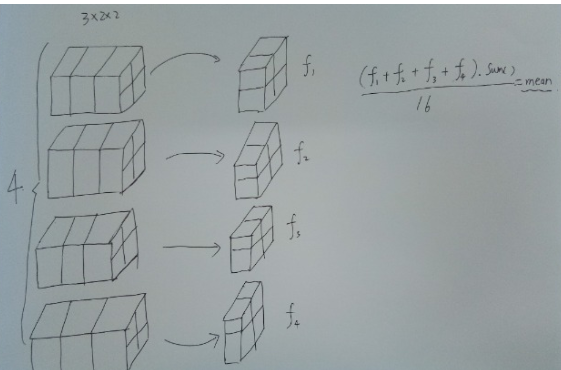 3×2×2
4
f₁
f₂
f₃
f₄
(f₁ + f₂ + f₃ + f₄). sum()
16
= mean